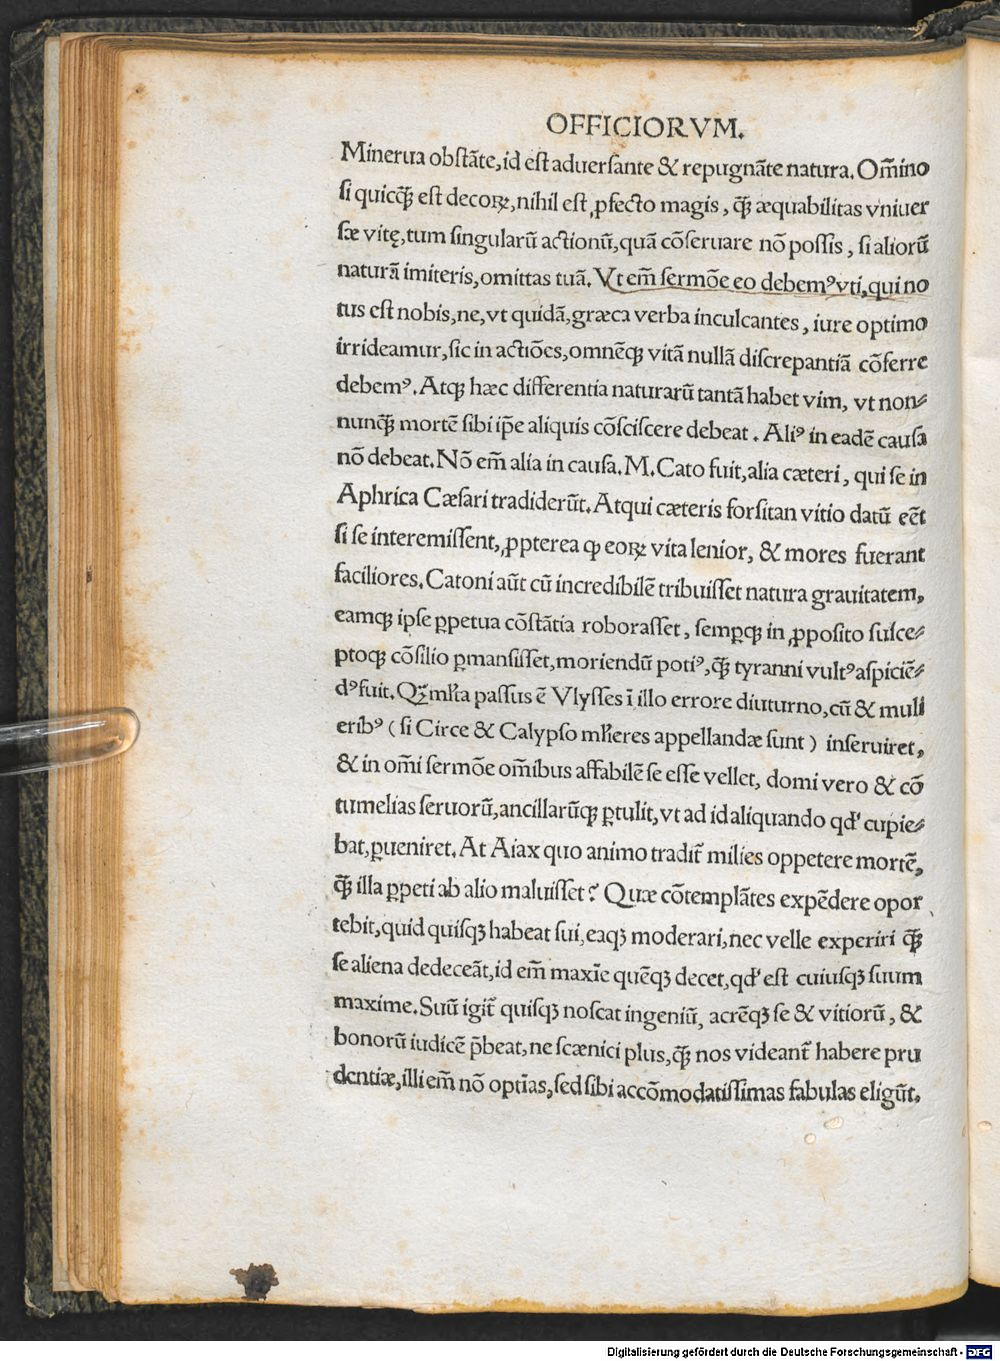 OFFICIORVM.
Minerua obstāte, id est aduersante & repugnāte natura. Om̄ino
si quicq̄ȝ est decoꝝ, nihil est ꝓfecto magis, q̄ȝ æquabilitas vniuer
sæ vitę, tum singularū actionū, quā cōseruare nō possis, si aliorū
naturā imiteris, omittas tuā. Vt em̄ sermōe eo debemꝰ vti, qui no
tus est nobis, ne, vt quidā, græca verba inculcantes, iure optimo
irrideamur, sic in actiōes, omnēqȝ vitā nullā discrepantiā cōferre
debemꝰ. Atqȝ hæc differentia naturarū tantā habet vim, vt non⸗
nunq̄ȝ mortē sibi ip̄e aliquis cōsciscere debeat. Aliꝰ in eadē causa
nō debeat. Nō em̄ alia in causa. M. Cato fuit, alia cæteri, qui se in
Aphrica Cæsari tradiderūt. Atqui cæteris forsitan vitio datū eēt
si se interemissent, ꝓpterea ꝙ eoꝝ vita lenior, & mores fuerant
faciliores. Catoni aūt cū incredibilē tribuisset natura grauitatem,
eamqȝ ipse ꝑpetua cōstātia roborasset, semꝑqȝ in ꝓposito susce⸗
ptoqȝ cōsilio ꝑmansisset, moriendū potiꝰ, q̄ȝ tyranni vultꝰ aspiciē⸗
dꝰ fuit. Qꝝ mĺta passus ē Vlysses ī illo errore diuturno, cū & muli
eribꝰ (si Circe & Calypso mĺieres appellandæ sunt) inseruiret,
& in om̄i sermōe om̄ibus affabilē se esse vellet, domi vero & cō
tumelias seruorū, ancillarūqȝ ꝑtulit, vt ad id aliquando qd' cupie⸗
bat, ꝑueniret. At Aiax quo animo tradit̄ milies oppetere mortē,
q̄ȝ illa ꝑpeti ab alio maluisset? Quæ cōtemplātes expēdere opor
tebit, quid quisqȝ habeat sui, eaqȝ moderari, nec velle experiri q̄ȝ
se aliena dedeceāt, id em̄ maxīe quēqȝ decet, qd' est cuiusqȝ suum
maxime. Suū igit̄ quisqȝ noscat ingeniū, acrēqȝ se & vitiorū, &
bonorū iudicē p̄beat, ne scænici plus, q̄ȝ nos videant̄ habere pru
dentiæ, illi em̄ nō optīas, sed sibi accōmodatissimas fabulas eligūt.
Digitalisierung gefördert durch die Deutsche Forschungsgemeinschaft - DFG